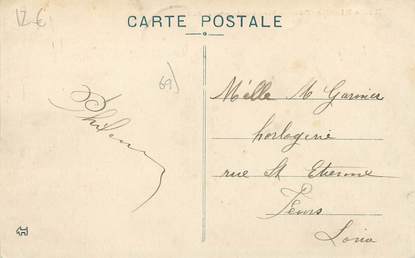 12 €
CARTE POSTALE
69)
Melle M Garnier
horlogerie
rue St Etienne
Feurs
Loire